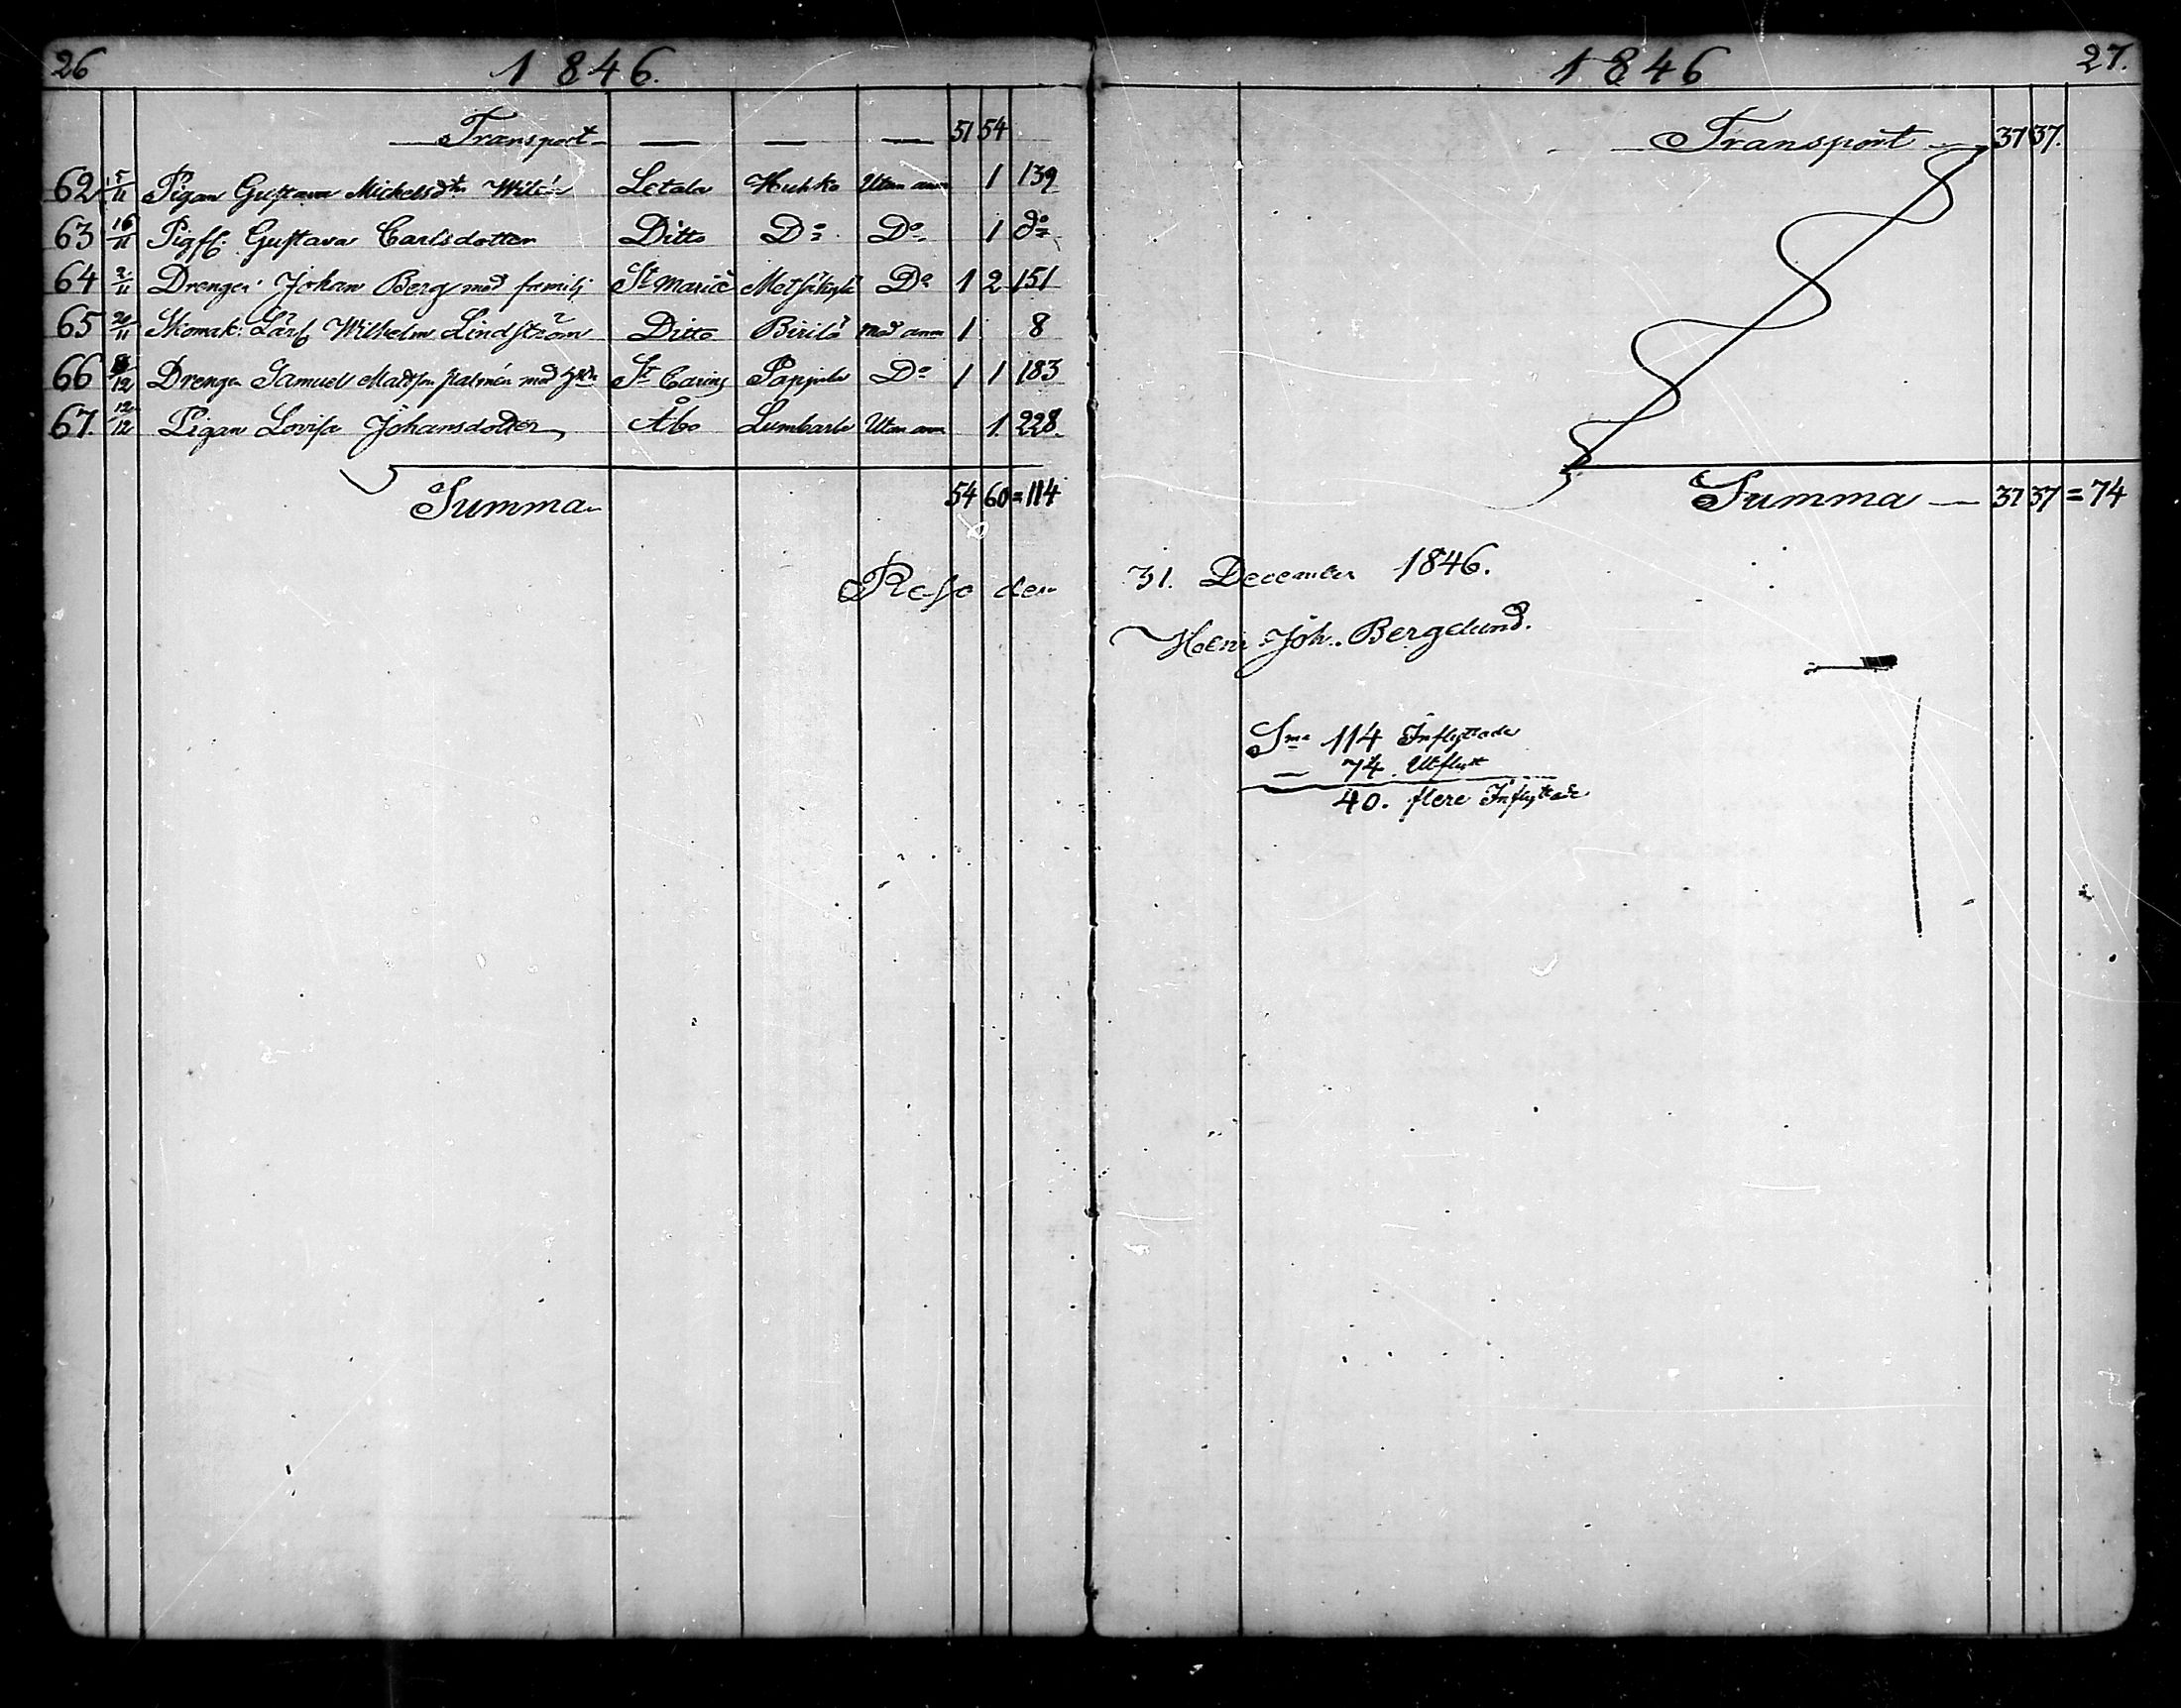 26 1846.
Transport — — — 51 54
62 5/11 Pigan Gustava Michelsdtr Wilén Letala Huhko Utan anm 1 139
63 16/11 Pigfl. Gustava Carlsdotter Ditto Do Do 1 do
64 2/11 Drengen Johan Berg med familj St Marie Do 1 2 151
65 20/11 Skomak: Lärl. Wilhelm Lindström Ditto Birilä med anm 1 8
66 /12 Drengen Samuel Madsson med St Carins Do 1 1 183
67. 12/12 Pigan Lovisa Johansdotter Åbo Lumbarla Utan anm 1. 228.
Summa 54 60 = 114
Reso den
1846 27.
Transport — 37 37.
Summa — 37 37 = 74
31. December 1846.
Henr. Joh. Berglund.
Sma 114 Inflyttade
— 74. Utflytt
40. flere Inflyttade